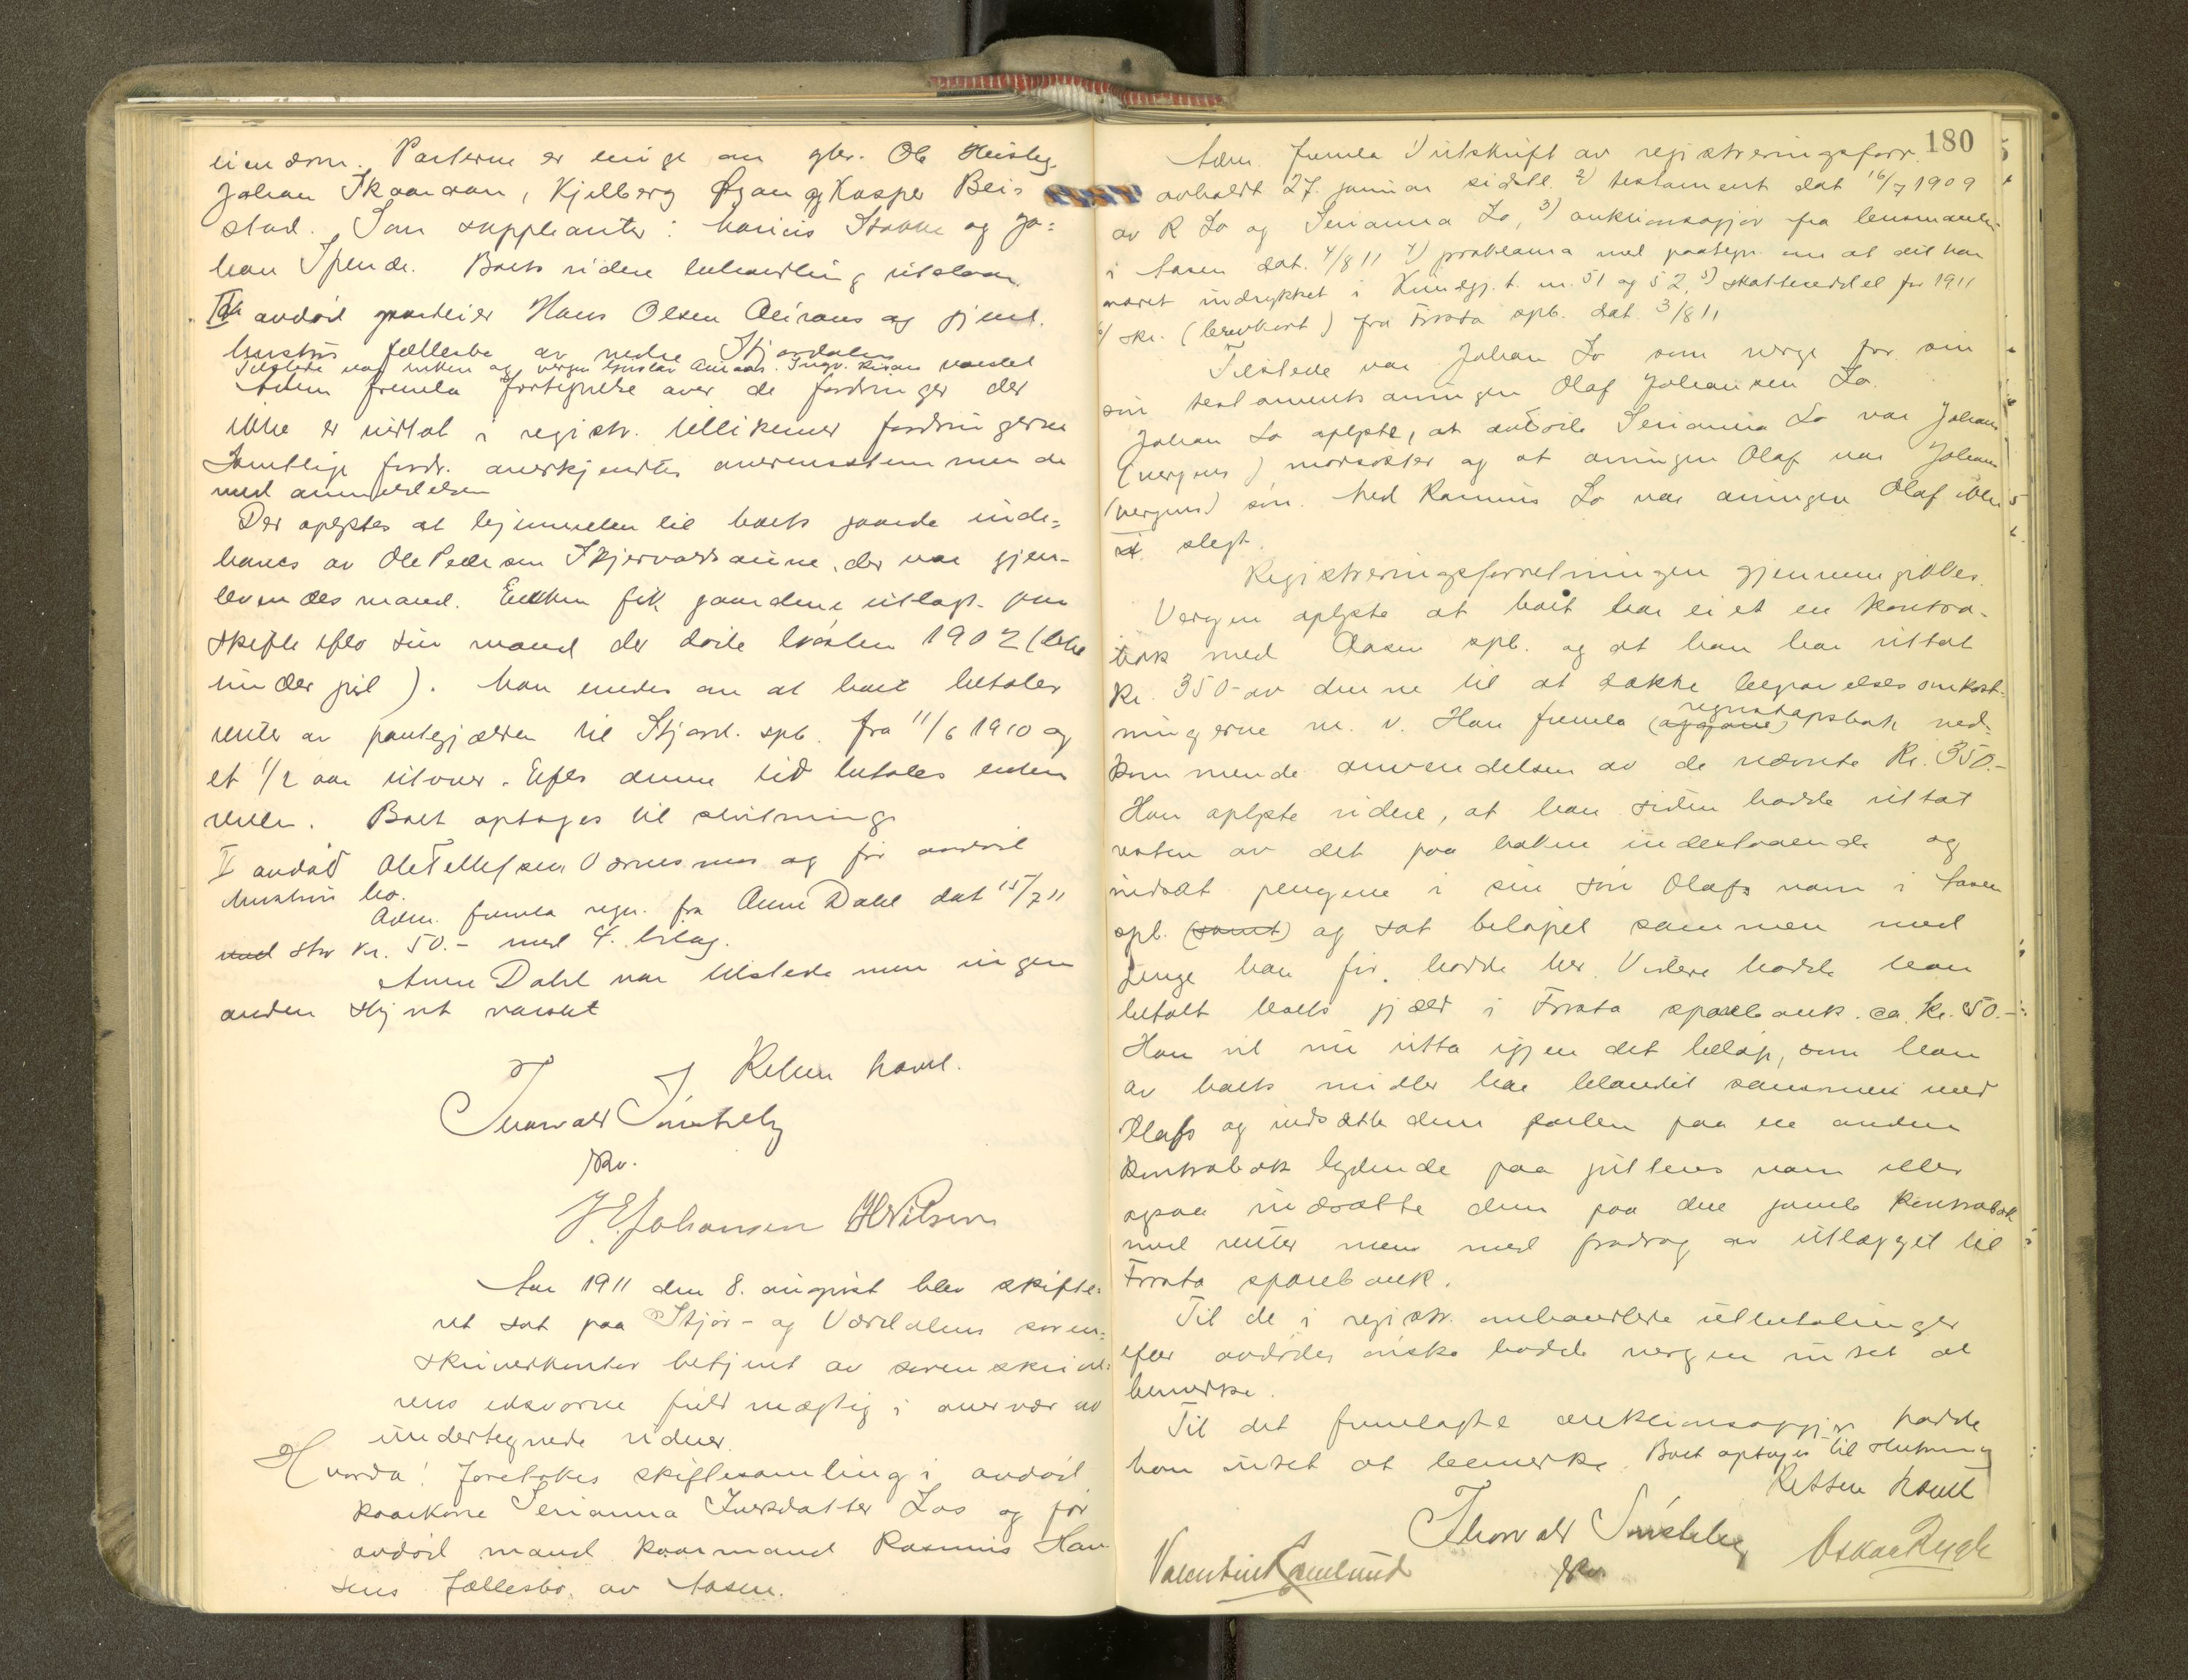 eiendom. Parterne er enige om gbr. Ole Heisteg
Johan Skaanaan, Kjelberg Øyan og Kasper Beis
stad. Som suppleanter: Marius Stokke og Jo=
han Spende. Boets videre behandling utstaar.
IV avdød gaardeier Hans Olsen Aeirans og gjenl.
hustrus fællesbo av nedre Stjørdalen
Tilstede var enken og vergen Gustav
Adm fremla fortegnelse over de fordringer der
ikke er uttat i registr. tillikemed fordringerne
Samtlige fordr. anerkjendtes overensstemmende
med anmeldelsen
Der oplystes at hjemmelen til boets gaarde inde=
haves av Ole Pedersen Skjervoldsaune, der var gjen-
levendes mand. Enken fik gaardene utlagt paa
skifte efter sin mand der døde høsten 1902 (ikke
under gjel). Man enedes om at boet betaler
renter av pantegjælden til Stjørd. spb. fra 11/6 1910 og
et 1/2 aar utover. Efter denne tid betales enken
renten. Boet optages til slutning
V avdød Ole Tellefsen Værnesmo og før avdød
hustrus bo.
Adm. fremla regn. fra Anne Dahl dat 15/7 11
med stor kr. 50.- med 4. bilag.
Anne Dahl var tilstede men ingen
anden skjønt varslet
Retten hævet.
Thorvald Smistely
fkv.
J. E. Johansen H Nilsen
Aar 1911 den 8. august blev skifte=
ret sat paa Stjør- og Værdalens soren=
skriverkontor betjent av sorenskrive=
rens edsvorne fuldmægtig i overvær av
undertegnede vidner.
Hvorda! foretokes skiftesamling i avdød
kaarkone Serianna Iversdatter Loes og før
avdød mand kaarmand Rasmus Han
sens fællesbo. av Aasen.
180
Adm. fremla 1) utskrift av registreringsforr.
avholdt 27. januar sidstl. 2) testament dat 16/7 1909
av R Lo og Serianna Lo, 3) auktionsopgjør fra lensmanden
i Aasen dat. 4/8 11 4) proklama med paategn. om at det har
været indrykket i Kundgj. t. nr. 51 og 52, 5) skatteseddel for 1911
6) skr. (brevkort) fra Frosta spb. dat. 3/8 11
Tilstede var Johan Lo som verge for sin
søn testamentsarvingen Olaf Johansen Lo.
Johan Lo oplyste, at avdøde Serianna Lo var Johans
(vergens) morsøster og at arvingen Olaf var Johans
(vergens) søn. Med Rasmus Lo var arvingen Olaf ikke
i slegt.
Registreringsforretningen gjennemgikkes.
Vergen oplyste at boet har eiet en kontra-
bok med Aasen spb. og at han har uttat
kr. 350- av denne til at dække begravelsesomkost-
ningerne m. v. Han fremla (opgjøre) regnskapsbok ved=
kommende anvendelsen av de nævnte kr. 350.-
Han oplyste videre, at han siden hadde uttat
resten av det paa boken indestaaende og
indsat pengene i sin søn Olafs navn i Aasen
spb. (samt) og sat beløpet sammen med
penge han før hadde her. Videre hadde han
betalt boets gjæld i Frosta sparebank ca. kr. 50.-
Han vil nu utta igjen det beløp, som han
av boets midler har blandet sammen med
Olafs og indsætte dem paa en anden
kontrabok lydende paa guttens navn eller
ogsaa indsætte dem paa den gamle kontrabok
med renter men med fradrag av utlægget til
Frosta sparebank.
Til de i registr. omhandlede utbetalinger
efter avdødes ønske hadde vergen intet at
bemerke.
Til det fremlagte auktionsopgjør hadde
han intet at bemerke. Boet optages til slutning
Retten hævet
Thorvald Smistely
fkv.
Valentin Ramlund
Oskar Rygh